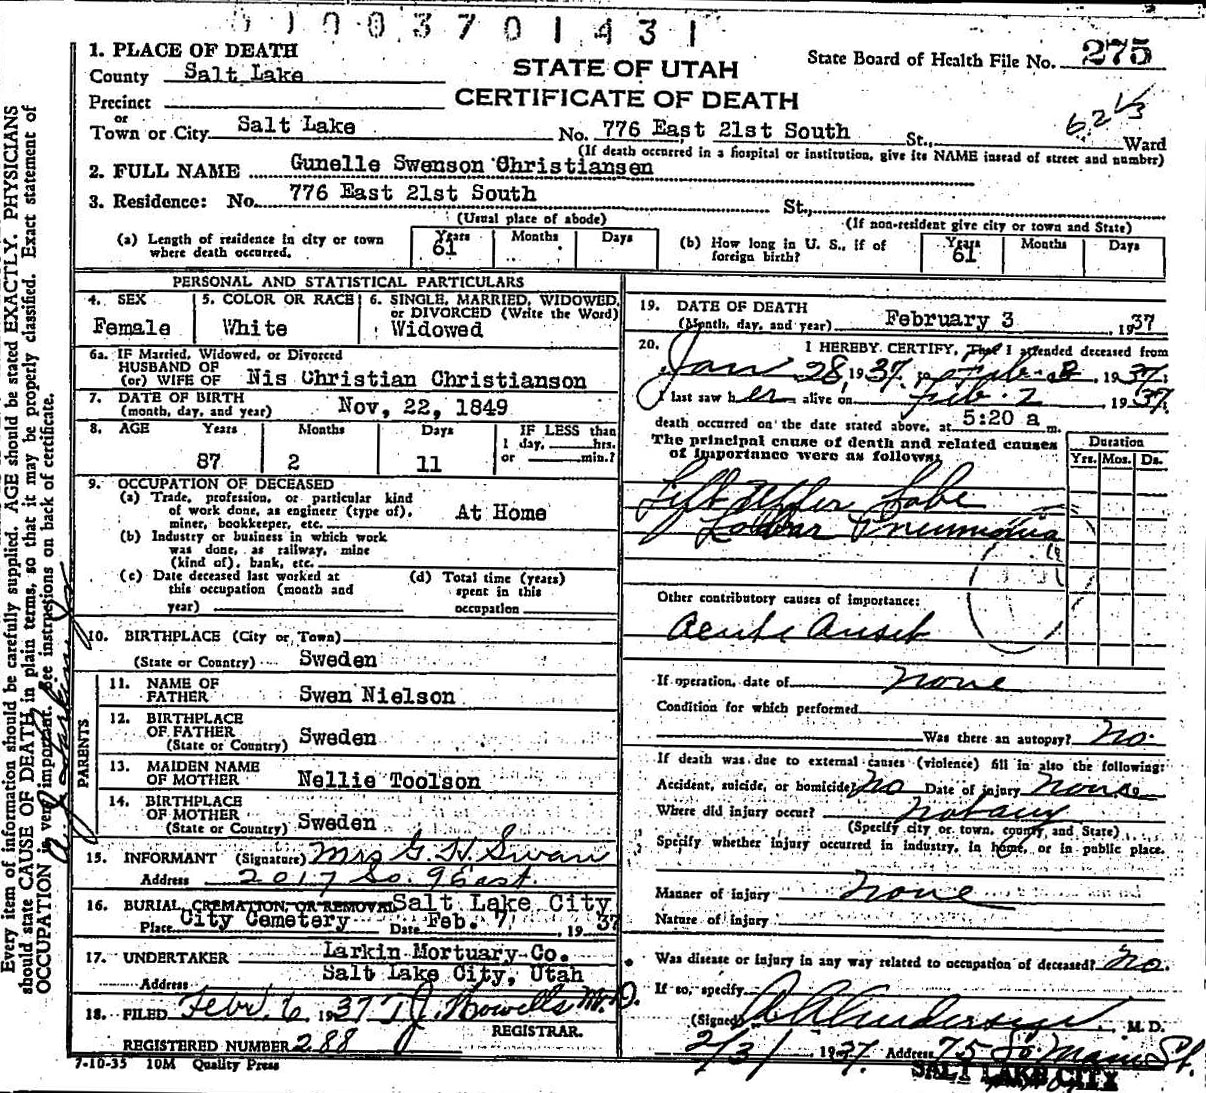 0 1 0 0 3 7 0 1 4 3 1
1. PLACE OF DEATH
County Salt Lake
STATE OF UTAH
State Board of Health File No. 275
Precinct
CERTIFICATE OF DEATH
or
Town or City Salt Lake No. 776 East 21st South St., Ward
62 1/3
(If death occurred in a hospital or institution, give its NAME instead of street and number)
2. FULL NAME Gunelle Swenson Christiansen
3. Residence: No. 776 East 21st South St.,
(Usual place of abode) (If non-resident give city or town and State)
(a) Length of residence in city or town where death occurred. Years 61 Months Days
(b) How long in U. S., if of foreign birth? Years 61 Months Days
PERSONAL AND STATISTICAL PARTICULARS
4. SEX Female
5. COLOR OR RACE White
6. SINGLE, MARRIED, WIDOWED, or DIVORCED (Write the Word) Widowed
6a. IF Married, Widowed, or Divorced
HUSBAND OF
(or) WIFE OF Nis Christian Christianson
7. DATE OF BIRTH
(month, day, and year) Nov, 22, 1849
8. AGE Years 87 Months 2 Days 11
IF LESS than
1 day, hrs.
or min.?
9. OCCUPATION OF DECEASED
(a) Trade, profession, or particular kind
of work done, as engineer (type of),
miner, bookkeeper, etc. At Home
(b) Industry or business in which work
was done, as railway, mine
(kind of), bank, etc.
(c) Date deceased last worked at
this occupation (month and
year)
(d) Total time (years)
spent in this
occupation
10. BIRTHPLACE (City or Town)
(State or Country) Sweden
PARENTS
11. NAME OF
FATHER Swen Nielson
12. BIRTHPLACE
OF FATHER
(State or Country) Sweden
13. MAIDEN NAME
OF MOTHER Nellie Toolson
14. BIRTHPLACE
OF MOTHER
(State or Country) Sweden
15. INFORMANT (Signature) Mrs G. H. Swan
Address 2017 So. 9 East.
16. BURIAL, CREMATION, OR REMOVAL Salt Lake City
Place City Cemetery Date Feb. 7, 1937
17. UNDERTAKER Larkin Mortuary Co.
Address Salt Lake City, Utah
18. FILED Feb. 6, 1937 T. J. Howells M.D.
REGISTRAR.
REGISTERED NUMBER 288
7-10-35 10M Quality Press
19. DATE OF DEATH
(Month, day, and year) February 3, 1937
20. I HEREBY CERTIFY, That I attended deceased from
Jan 28, 1937, to Feb. 2, 1937.
I last saw her alive on Feb. 2 1937,
death occurred on the date stated above, at 5:20 a m.
The principal cause of death and related causes
of importance were as follows:
Duration
Yrs. Mos. Ds.
Left Upper Lobe
Lobar Pneumonia
Other contributory causes of importance:
Acute Onset
If operation, date of none
Condition for which performed
Was there an autopsy? No.
If death was due to external causes (violence) fill in also the following:
Accident, suicide, or homicide? No Date of injury None
Where did injury occur? not any
(Specify city or town, county, and State)
Specify whether injury occurred in industry, in home, or in public place.
Manner of injury None
Nature of injury
Was disease or injury in any way related to occupation of deceased? No.
If so, specify
(Signed) Anderson, M. D.
2/3/ 1937. Address 75 So. Main St.
SALT LAKE CITY
Every item of information should be carefully supplied. AGE should be stated EXACTLY. PHYSICIANS
should state CAUSE OF DEATH in plain terms, so that it may be properly classified. Exact statement of
OCCUPATION is very important. See instructions on back of certificate.